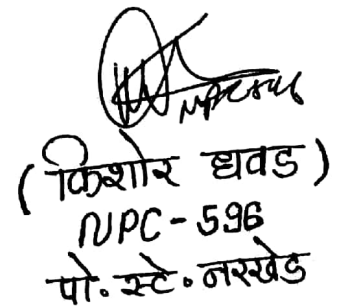 (किशोर धवड)
NPC-596
पो. स्टे. नरखेड